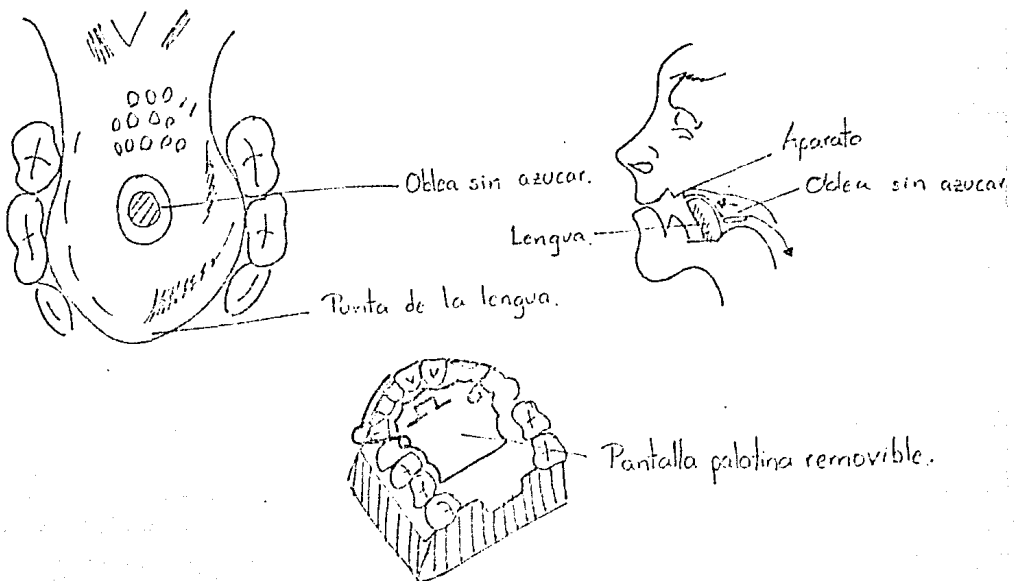 Oblea sin azucar.
Punta de la lengua.
Aparato
Oblea sin azucar
Lengua.
Pantalla palatina removible.